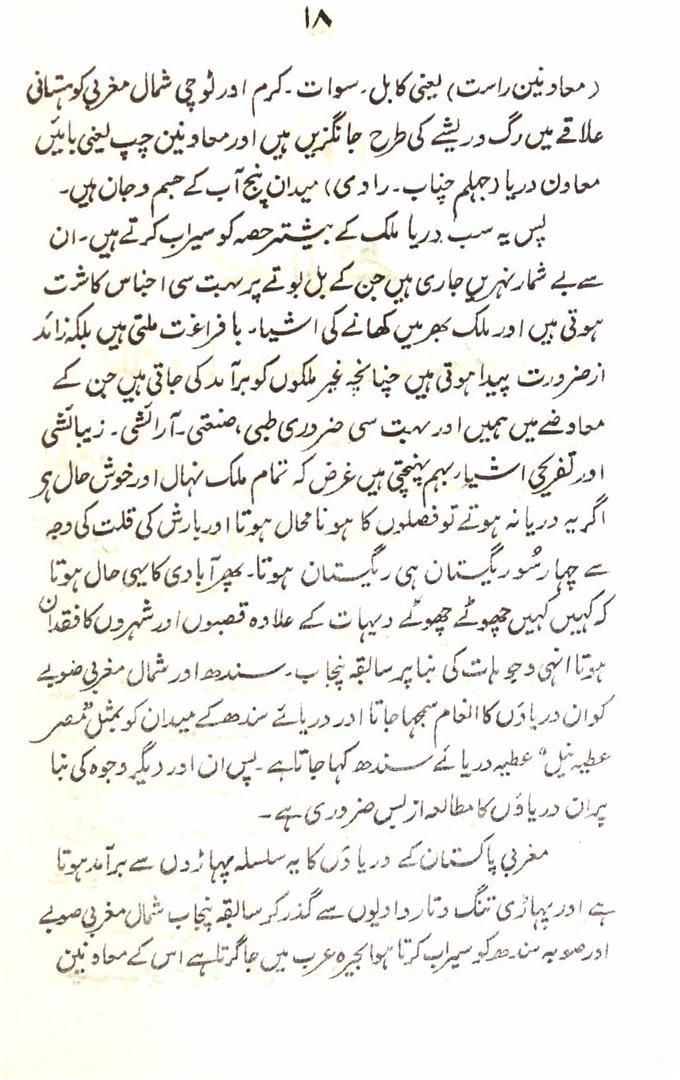 ۱۸
(معاونین راست) یعنی کابل۔ سوات۔ کرم اور ٹوچی شمال مغربی کوہستانی
علاقے میں رگ و ریشے کی طرح جانگزیں ہیں اور معاونین چپ یعنی بائیں
معاون دریا (جہلم چناب۔ راوی) میدان پنج آب کے جسم و جان ہیں۔
پس یہ سب دریا ملک کے بیشتر حصہ کو سیراب کرتے ہیں۔ ان
سے بے شمار نہریں جاری ہیں جن کے بل بوتے پر بہت سی اجناس کاشت
ہوتی ہیں اور ملک بھر میں کھانے کی اشیاء با فراغت ملتی ہیں بلکہ زائد
از ضرورت پیدا ہوتی ہیں چنانچہ غیر ملکوں کو برآمد کی جاتی ہیں جن کے
معاوضے میں ہمیں اور بہت سی ضروری طبی، صنعتی۔ آرائشی۔ زیبائشی
اور تفریحی اشیاء بہم پہنچتی ہیں غرض کہ تمام ملک نہال اور خوش حال ہر
اگر یہ دریا نہ ہوتے تو فصلوں کا ہونا محال ہوتا اور بارش کی قلت کی وجہ
سے چہار سُو ریگستان ہی ریگستان ہوتا۔ پھر آبادی کا یہی حال ہوتا
کہ کہیں کہیں چھوٹے چھوٹے دیہات کے علاوہ قصبوں اور شہروں کا فقدان
ہوتا انہی وجوہات کی بنا پر سابقہ پنجاب۔ سندھ اور شمال مغربی صوبے
کو ان دریاؤں کا انعام سمجھا جاتا اور دریائے سندھ کے میدان کو بمثل "مصر
عطیہ نیل" عطیہ دریائے سندھ کہا جاتا ہے۔ پس ان اور دیگر وجوہ کی بنا
پر ان دریاؤں کا مطالعہ از بس ضروری ہے۔
مغربی پاکستان کے دریاؤں کا یہ سلسلہ پہاڑوں سے برآمد ہوتا
ہے اور پہاڑی تنگ و تار وادیوں سے گذر کر سابقہ پنجاب شمال مغربی صوبے
اور صوبہ سندھ کو سیراب کرتا ہوا بحیرہ عرب میں جا گرتا ہے اس کے معاونین